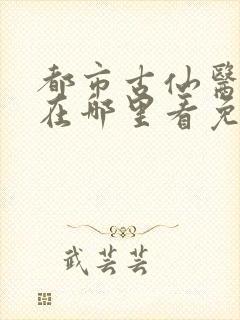 都市古仙醫
在哪里看免
武芸芸